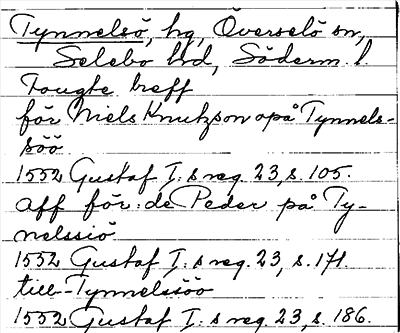 Tynnelsö, hg, Överselö sn,
Selebo hd, Söderm. l.
Fougte breff
för Niels Knutzson opå Tynnels-
söö
1552 Gustaf I:s reg. 23, s. 105.
aff för:de Peder på Ty-
nelssiö
1552 Gustaf I:s reg. 23, s. 171.
till Tynnelssöö
1552 Gustaf I:s reg. 23, s. 186.